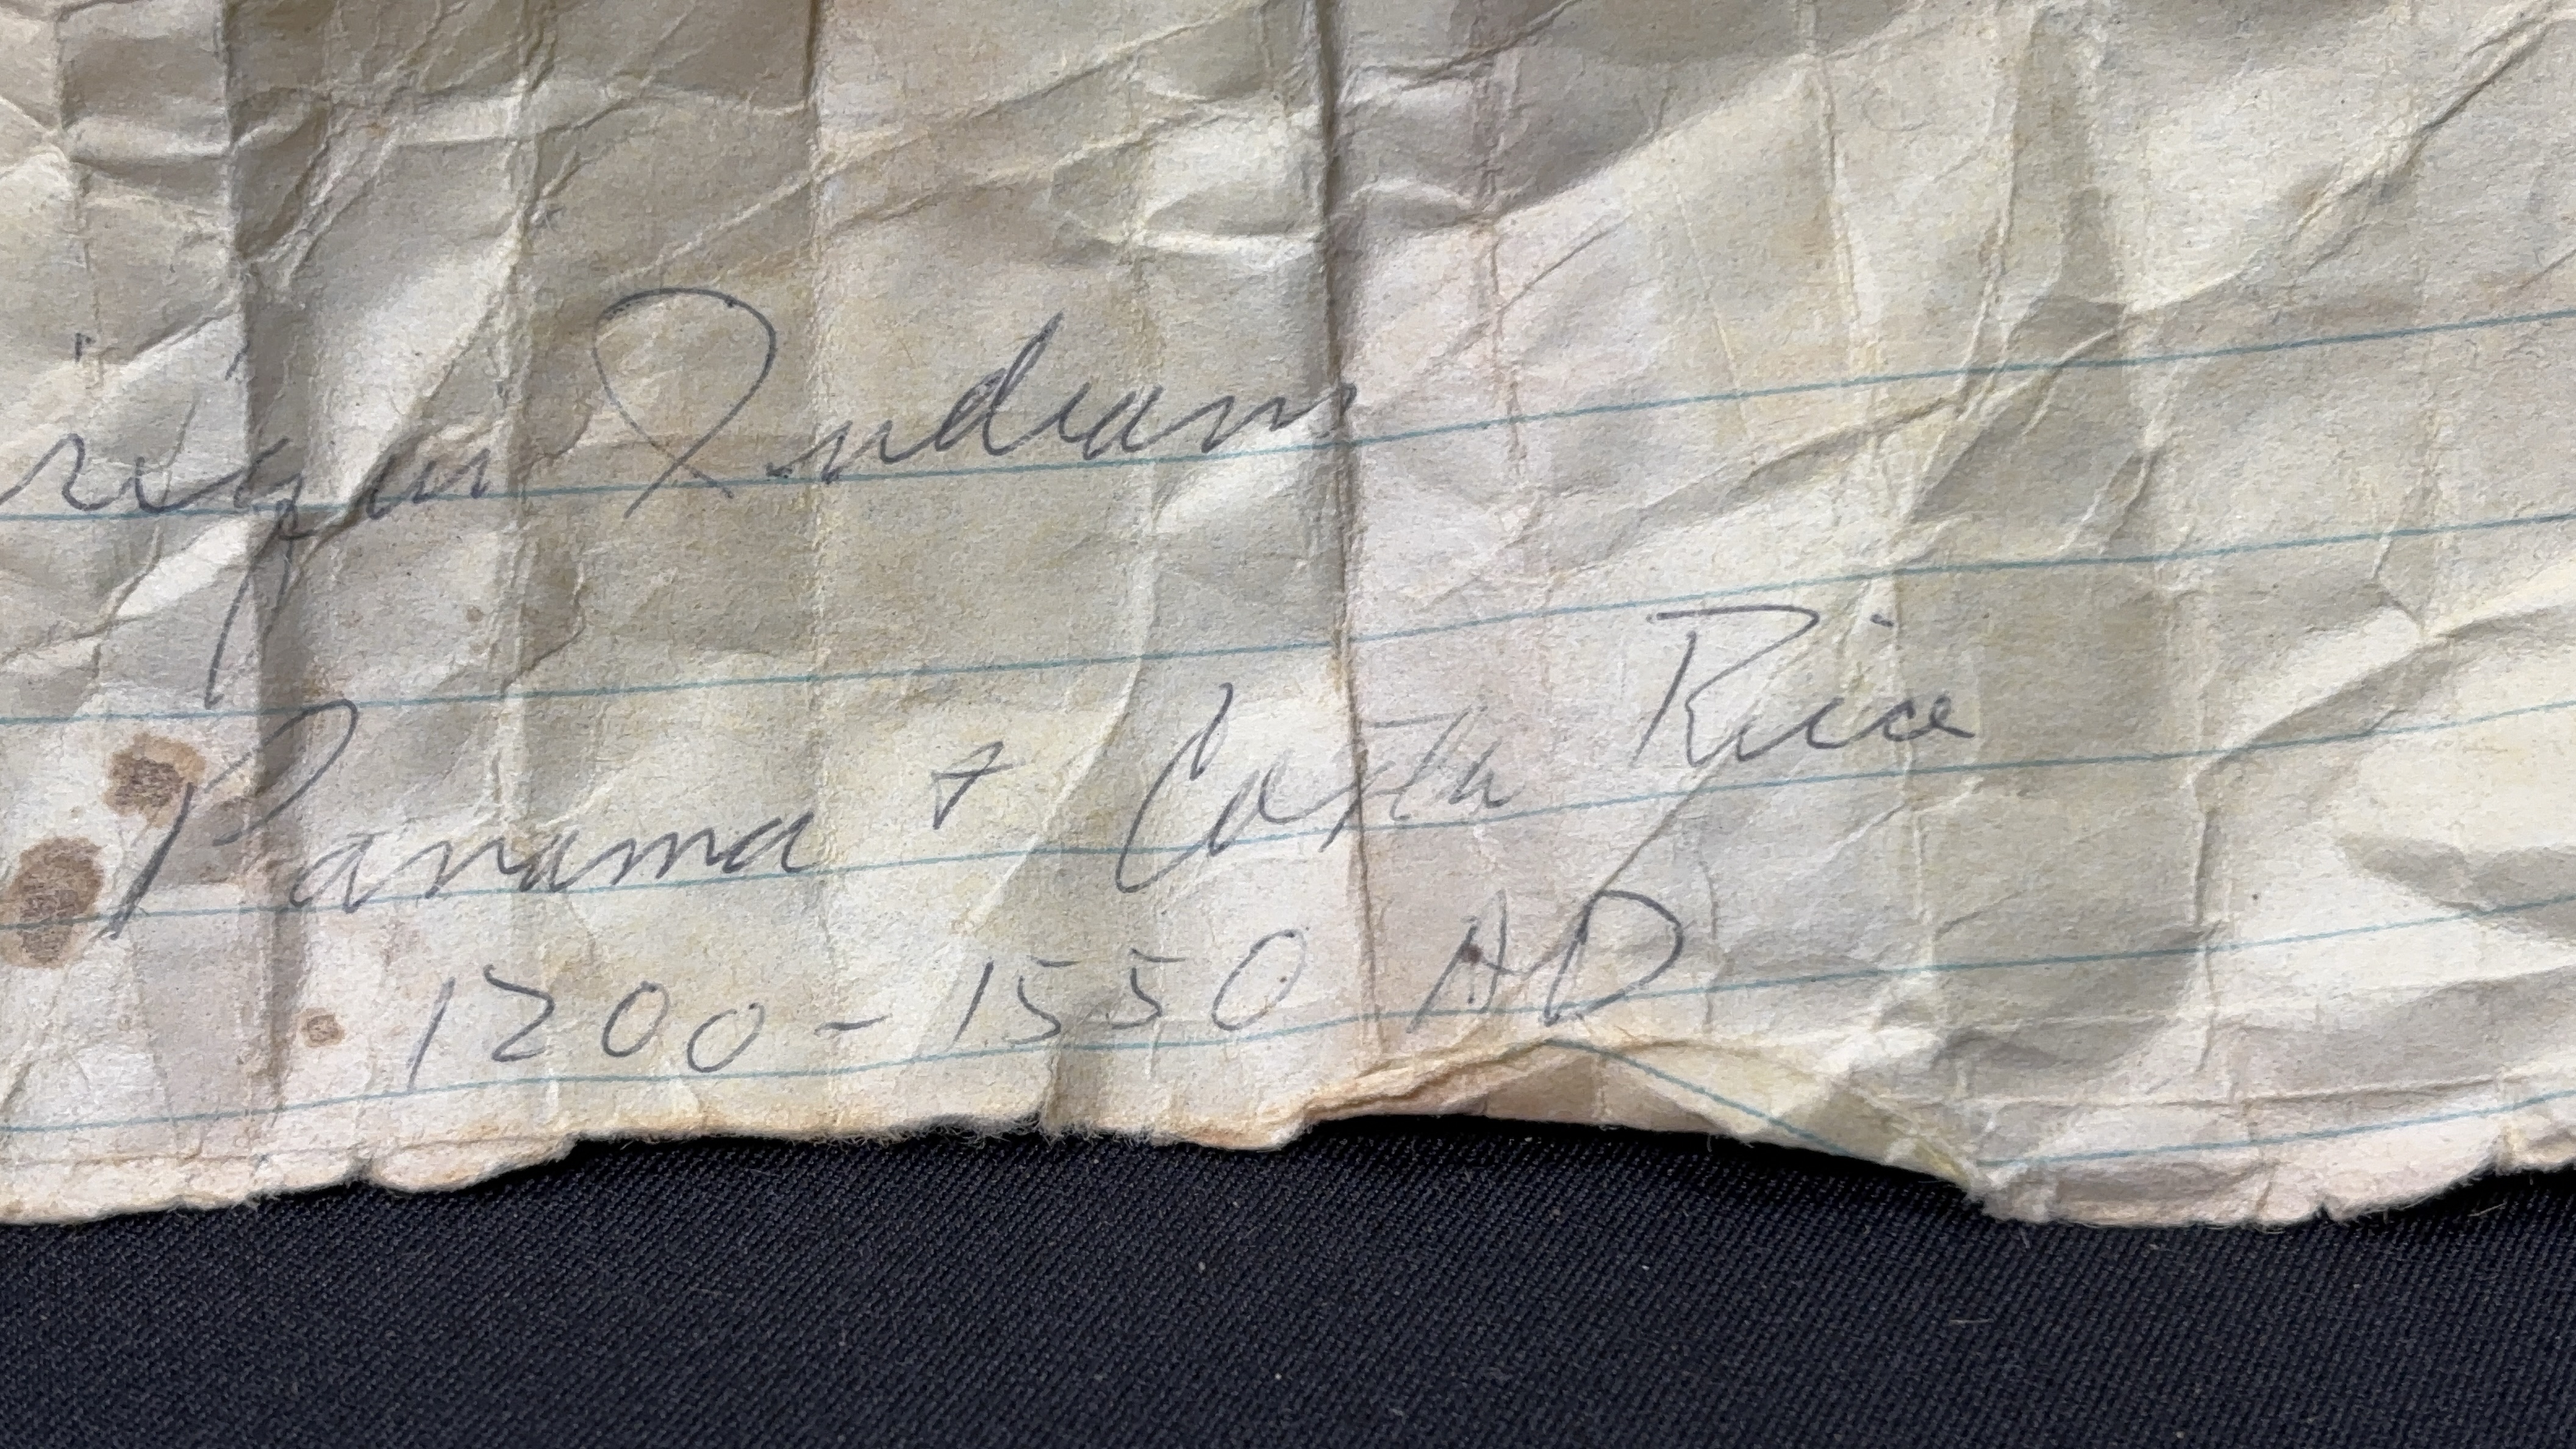 Indians
Panama + Costa Rica
1200 - 1550 AD